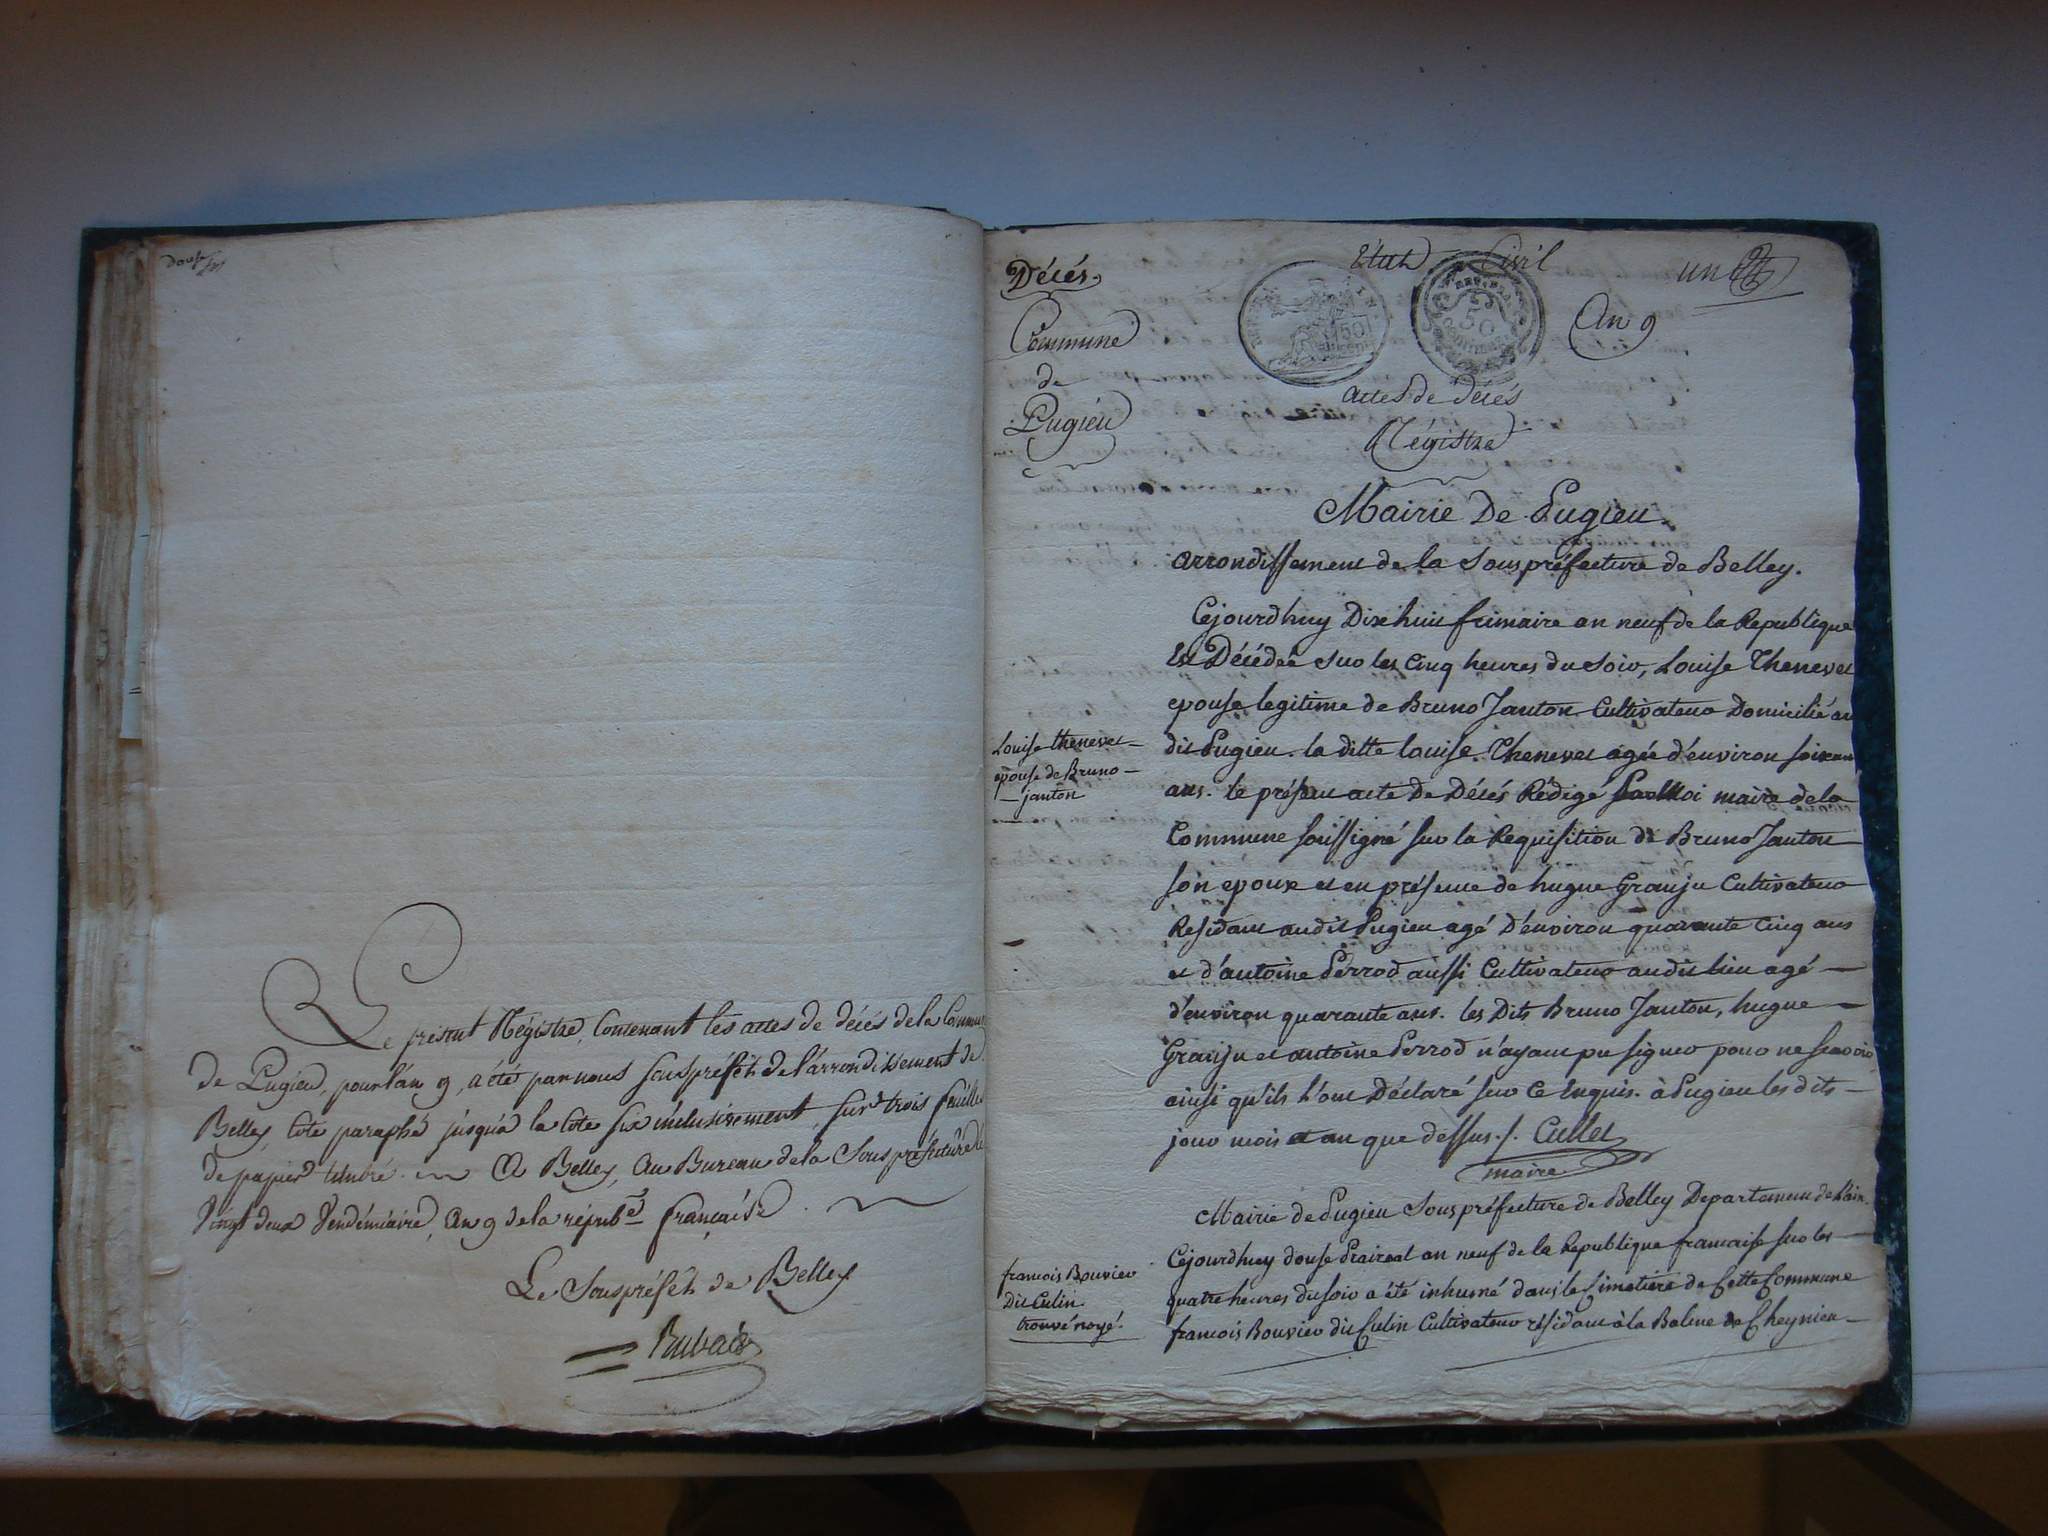 douse
Le présent Régistre, Contenant les actes de décés de la Commune
de Pugieu, pour l'an 9, a été par nous souspréfét de l'arrondissement de
Belley, coté paraphé jusqu'à la cote six inclusivement, sur trois feuilles
de papier timbré. A Belley, au Bureau de la Souspréfecture le
Vingt deux Vendémiaire, an 9 de la répub.e française.
Le Souspréfét de Belley
Rubat
Décés.
Commune
de
Pugieu
Etat Civil
un
An 9
REP. FRA.
50
CENTIMES
Actes de Décés
Régistre
Mairie De Pugieu.
arrondissement de la Souspréfecture de Belley.
Cejourdhuy Dixhuit frimaire an neuf de la Republique
Est Décédée sur les Cinq heures du Soir, Louise Thenevet
epouse legitime de Bruno Janton Cultivateur Domicilié au
dit Pugieu. la ditte louise Thenevet agée d'environ soixante
ans. le présent acte De Décés Rédigé par Moi maire de la
Commune soussigné sur la Requisition de Bruno Janton
son epoux et en présence de hugue Granju Cultivateur
Residant audit Pugieu agé D'environ quarante Cinq ans
et d'antoine Perrod aussi Cultivateur audit lieu agé
d'environ quarante ans. les Dits Bruno Janton, hugue
Granju et antoine Perrod n'ayant pu signer pour ne scavoir
ainsi qu'ils l'ont Déclaré sur ce Enquis. à Pugieu les dits
jour mois et an que dessus./. Cullet
maire
Louise thenevet
epouse de Bruno
janton
Mairie de Pugieu Souspréfecture de Belley Departement de l'ain.
Cejourdhuy douse Praireal an neuf de la Republique francaise sur les
quatre heures du soir a été inhumé dans le Cimetiere de Cette Commune
francois Bouvier dit Culin Cultivateur résidant à la Balme de Cheynieu
francois Bouvier
Dit Culin
trouvé noyé.